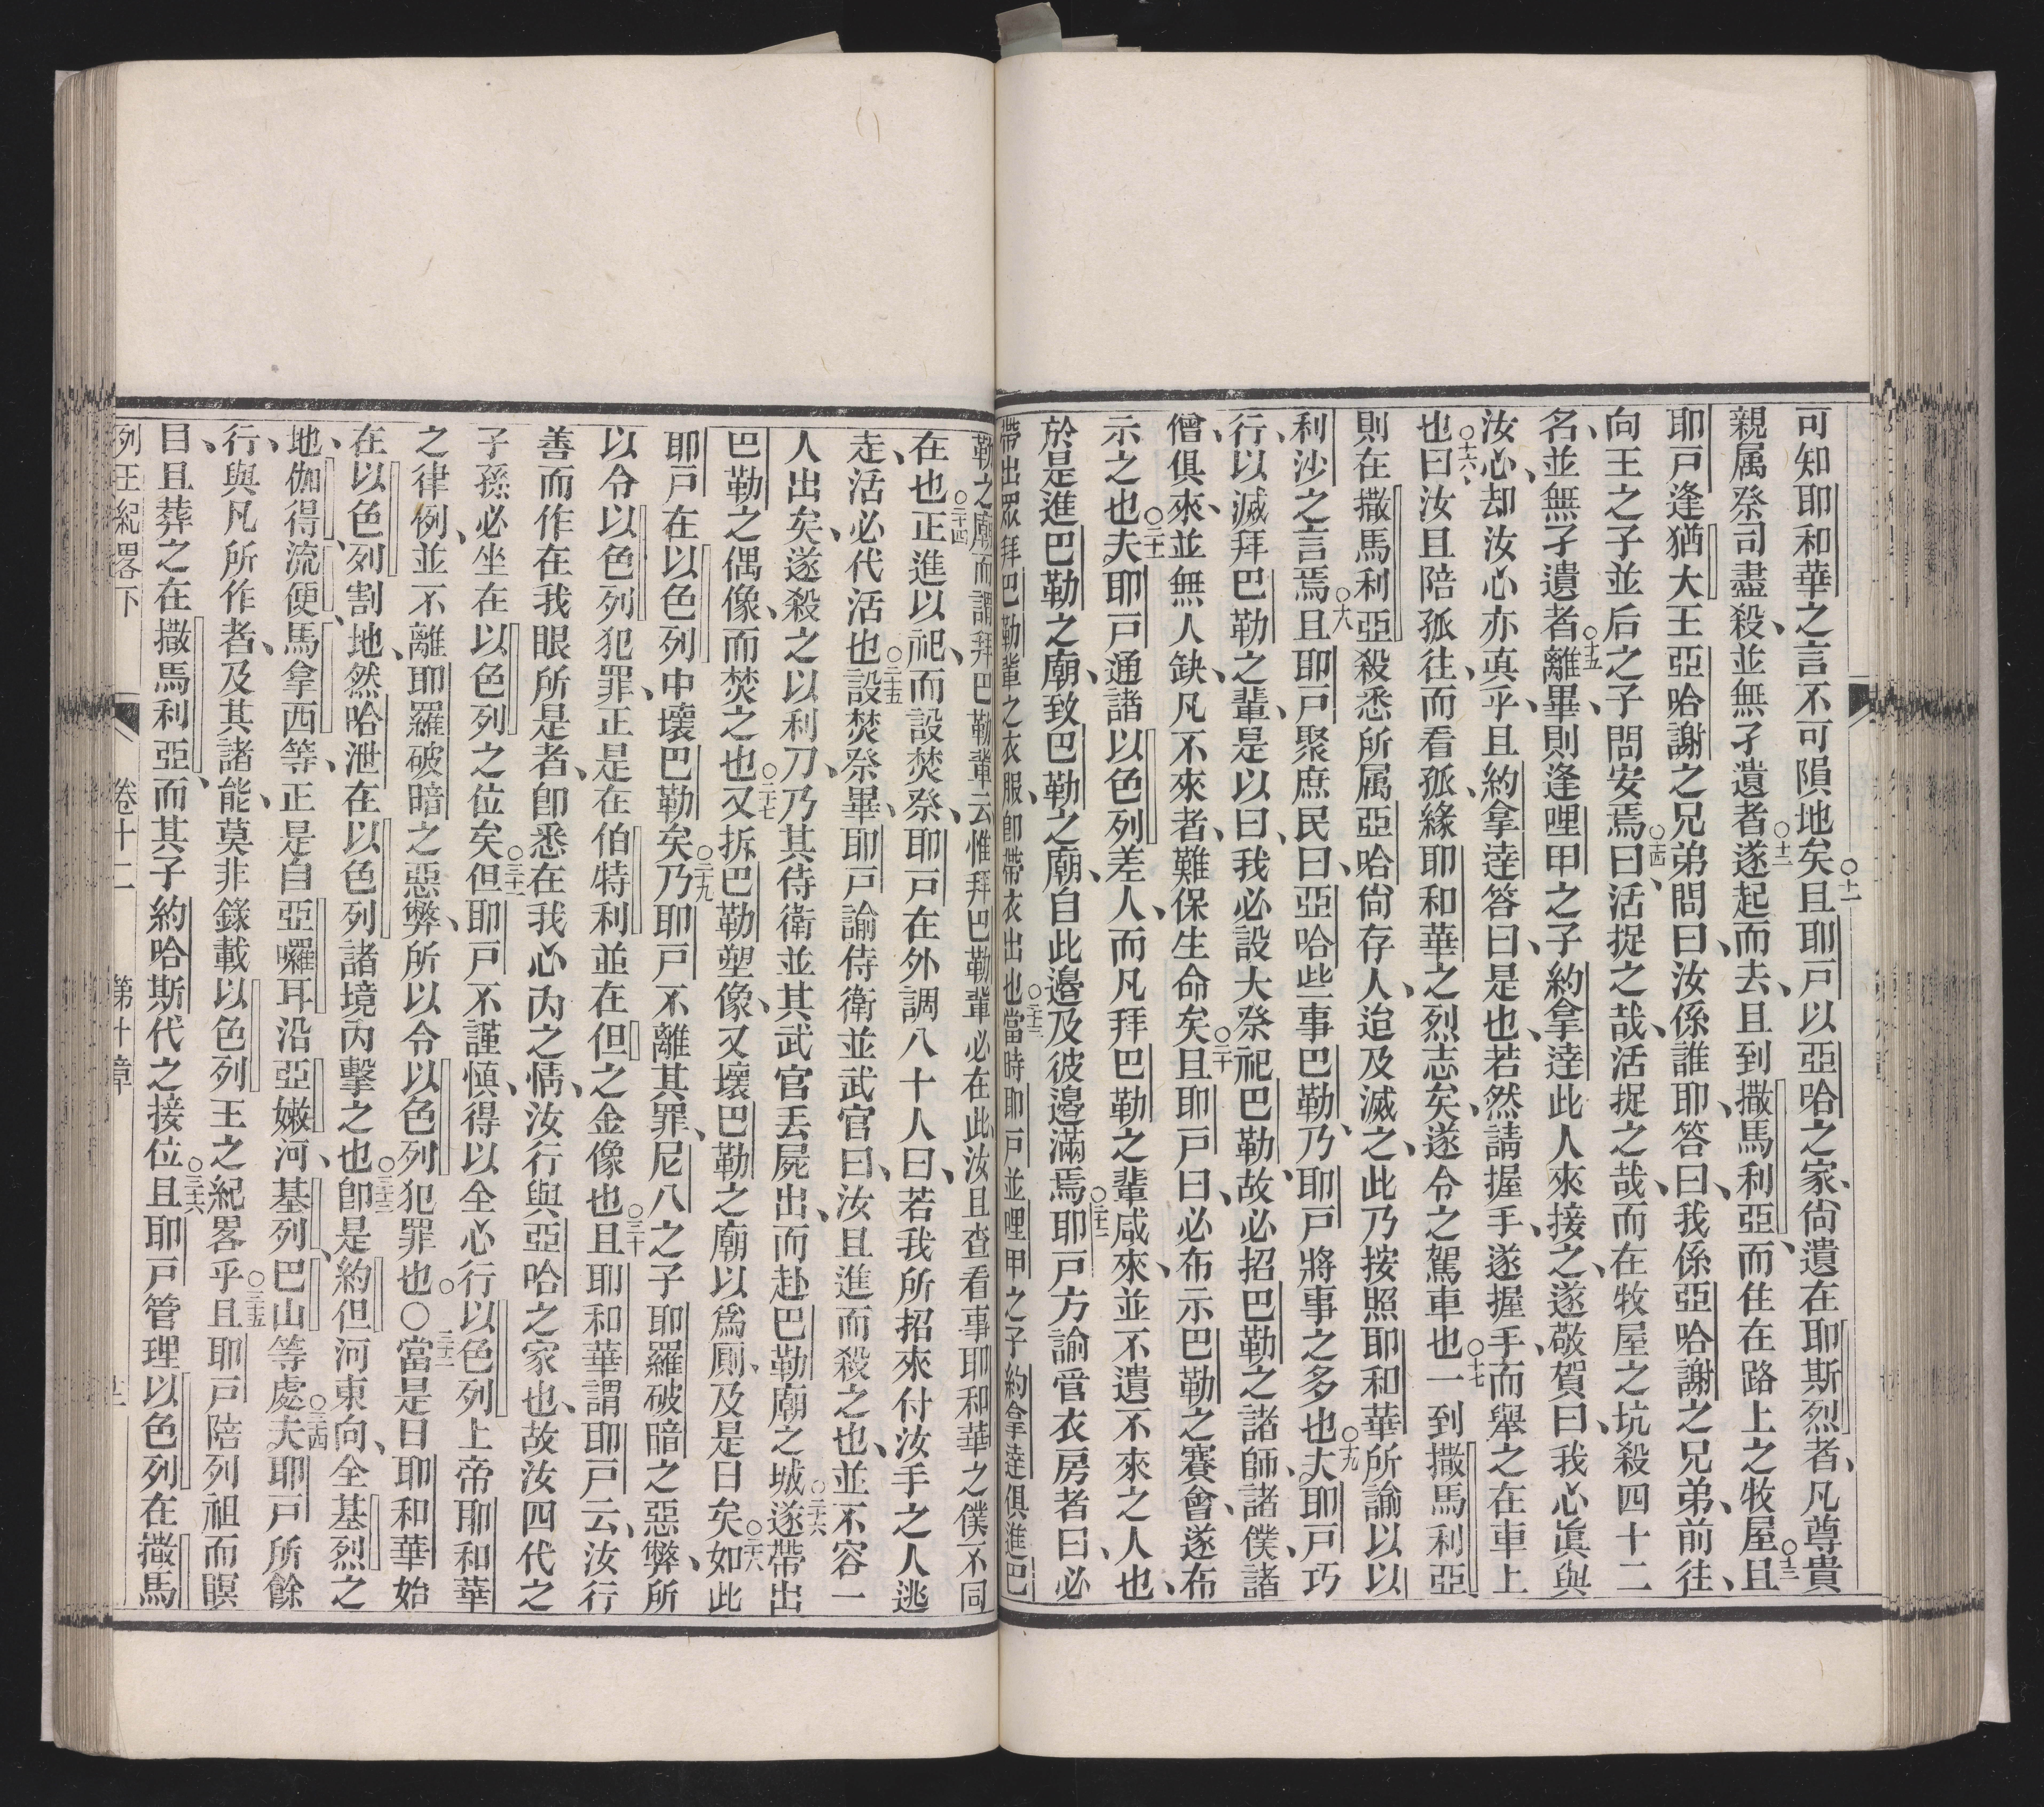 可知耶和華之言不可隕地矣○十一且耶戸以亞哈之家、尙遺在耶斯烈者、凡尊貴
親属祭司盡殺、並無孑遺者○十二遂起而去、且到撒馬利亞、而住在路上之牧屋○十三且
耶戸逢猶大王亞哈謝之兄弟問曰、汝係誰耶、答曰、我係亞哈謝之兄弟、前往、
向王之子並后之子問安焉○十四曰、活捉之哉、活捉之哉、而在牧屋之坑殺四十二
名、並無孑遺者○十五離畢、則逢哩甲之子約拿達此人來接之、遂敬賀曰、我心眞與
汝心、却汝心亦真乎、且約拿達答曰、是也、若然請握手、遂握手、而舉之在車上
也○十六、曰汝且陪孤往、而看孤緣耶和華之烈志矣、遂令之駕車也○十七一到撒馬利亞
則在撒馬利亞殺悉所属亞哈尙存人、迨及滅之、此乃按照耶和華所諭以以
利沙之言焉○十八且耶戸聚庶民曰、亞哈些事巴勒、乃耶戸將事之多也○十九夫耶戸巧
行、以滅拜巴勒之輩、是以曰、我必設大祭祀巴勒、故必招巴勒之諸師、諸僕、諸
僧、俱來、並無人缺、凡不來者、難保生命矣○二十且耶戸曰、必布示巴勒之賽會、遂布
示之也○二十一夫耶戸通諸以色列差人、而凡拜巴勒之輩咸來、並不遺不來之人也、
於是進巴勒之廟、致巴勒之廟、自此邊及彼邊滿焉○二十二耶戸方諭管衣房者曰、必
帶出眾拜巴勒輩之衣服、卽帶衣出也○二十三當時耶戸並哩甲之子約拿達俱進巴
勒之廟而謂拜巴勒輩云、惟拜巴勒輩必在此、汝且查看事耶和華之僕不同
在也○二十四正進以祀、而設焚祭、耶戸在外調八十人曰、若我所招來付汝手之人逃
走、活必代活也○二十五設焚祭畢、耶戸諭侍衛並武官曰、汝且進而殺之也、並不容一
人出矣、遂殺之以利刀、乃其侍衛並其武官丟屍出、而赴巴勒廟之城○二十六遂帶出
巴勒之偶像、而焚之也○二十七又拆巴勒塑像、又壞巴勒之廟以爲厠、及是日矣○二十八如此
耶戸在以色列中壞巴勒矣○二十九乃耶戸不離其罪、尼八之子耶羅破暗之惡弊、所
以令以色列犯罪、正是在伯特利並在但之金像也○三十且耶和華謂耶戸云、汝行
善而作在我眼所是者、卽悉在我心內之情、汝行與亞哈之家也、故汝四代之
子孫必坐在以色列之位矣○三十一但耶戸不謹慎、得以全心行以色列上帝耶和華
之律例、並不離耶羅破暗之惡弊、所以令以色列犯罪也○○三十二當是日耶和華始
在以色列割地、然哈泄在以色列諸境內擊之也○三十三卽是約但河東向、全基烈之
地、伽得、流便、馬拿西等、正是自亞囉耳沿亞嫩河、基列、巴山等處○三十四夫耶戸所餘
行、與凡所作者、及其諸能、莫非錄載以色列王之紀畧乎○三十五且耶戸陪列祖而瞑
目、且葬之在撒馬利亞、而其子約哈斯代之接位○三十六且耶戸管理以色列在撒馬
列王紀畧下 卷十二 第十章